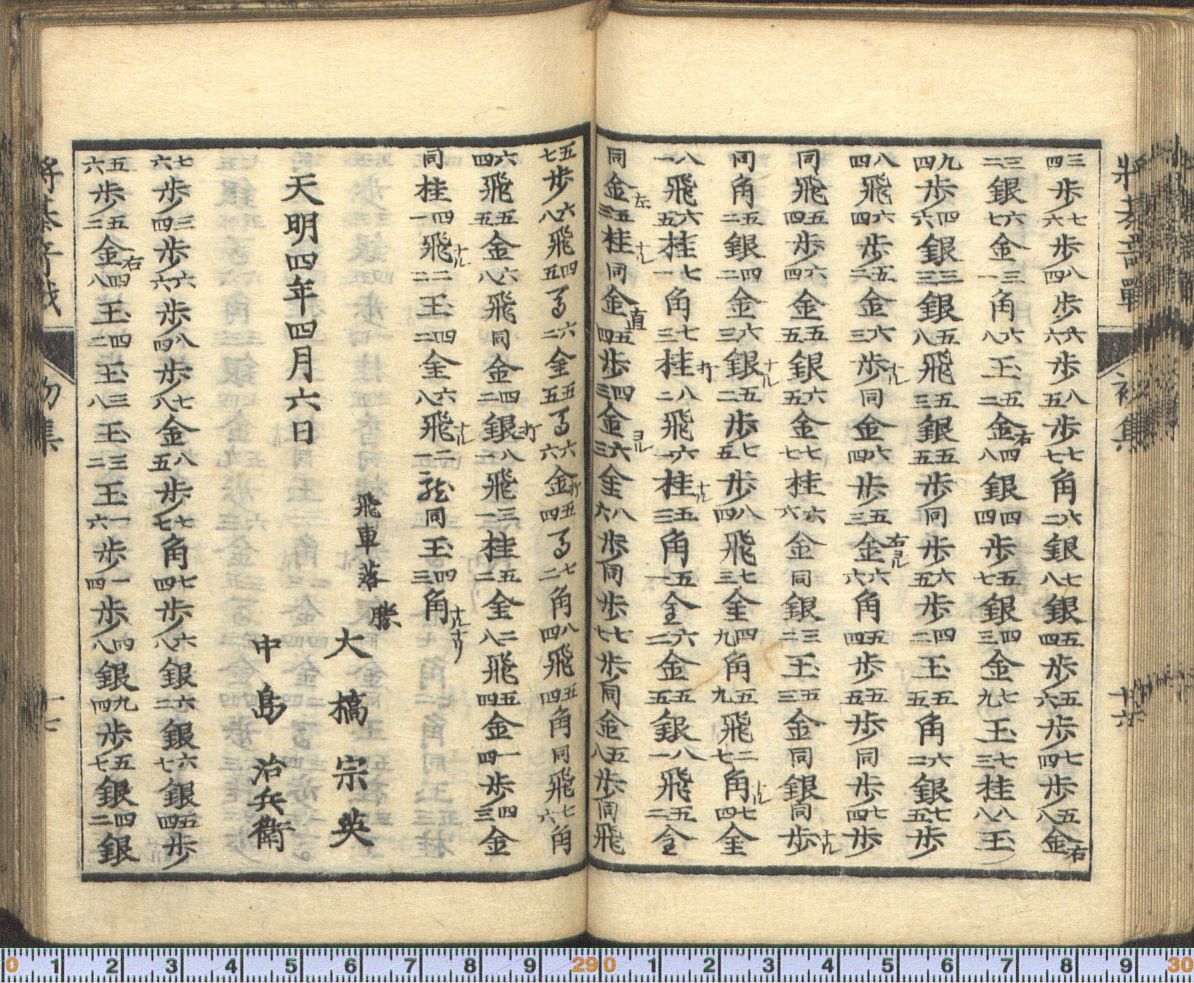 将棊奇戰 初集 十六
三四歩七六歩八四歩六六歩八五歩七七角六二銀七八銀五四歩五六歩七四歩五八金右
三二銀六七金三一角六八玉五二金右四八銀四四歩五七銀四三金七九玉七三桂八八玉
九四歩四六銀三三銀五八飛五三銀五五歩同歩六五歩四二玉五五角六二銀七五歩
八四飛六四歩五二金六三歩ナル同金七四歩五三金右ヨル六六角五四歩五五歩同歩七四歩
同飛五四歩六四金五五銀六五金七七桂六六金同銀三二玉五三金同銀同歩ナル
同角五二銀四二金六三銀ナル五二歩七五歩八四飛七三全四九角五九飛二七角ナル七四全
八一飛六五桂七一角七三桂打八二飛六一桂ナル五三角五一全六二金五五銀八一飛五二全
同金左五三桂ナル同金直五四歩四三金ヨル六三全八六歩同歩七七歩同金五八歩同飛
五七歩六八飛四五馬六二全五五馬六六金打五四馬七二角八四飛五四角同飛七六角
六四飛五五金六八飛同金四二銀打八一飛三一桂五二全二八飛五四金一四歩四三金
同桂四一飛ナル二二玉四二全六八飛ナル二一龍同玉四三角ナルナリ
飛車落 勝 大橋宗英
天明四年四月六日 中島治兵衛
七六歩三四歩六六歩八四歩七八金八五歩七七角七四歩六八銀六二銀六七銀五四歩
五六歩五二金右四八玉四二玉三八玉三二玉一六歩一四歩四八銀九四歩五七銀四二銀
将棊奇戦 初集 十七